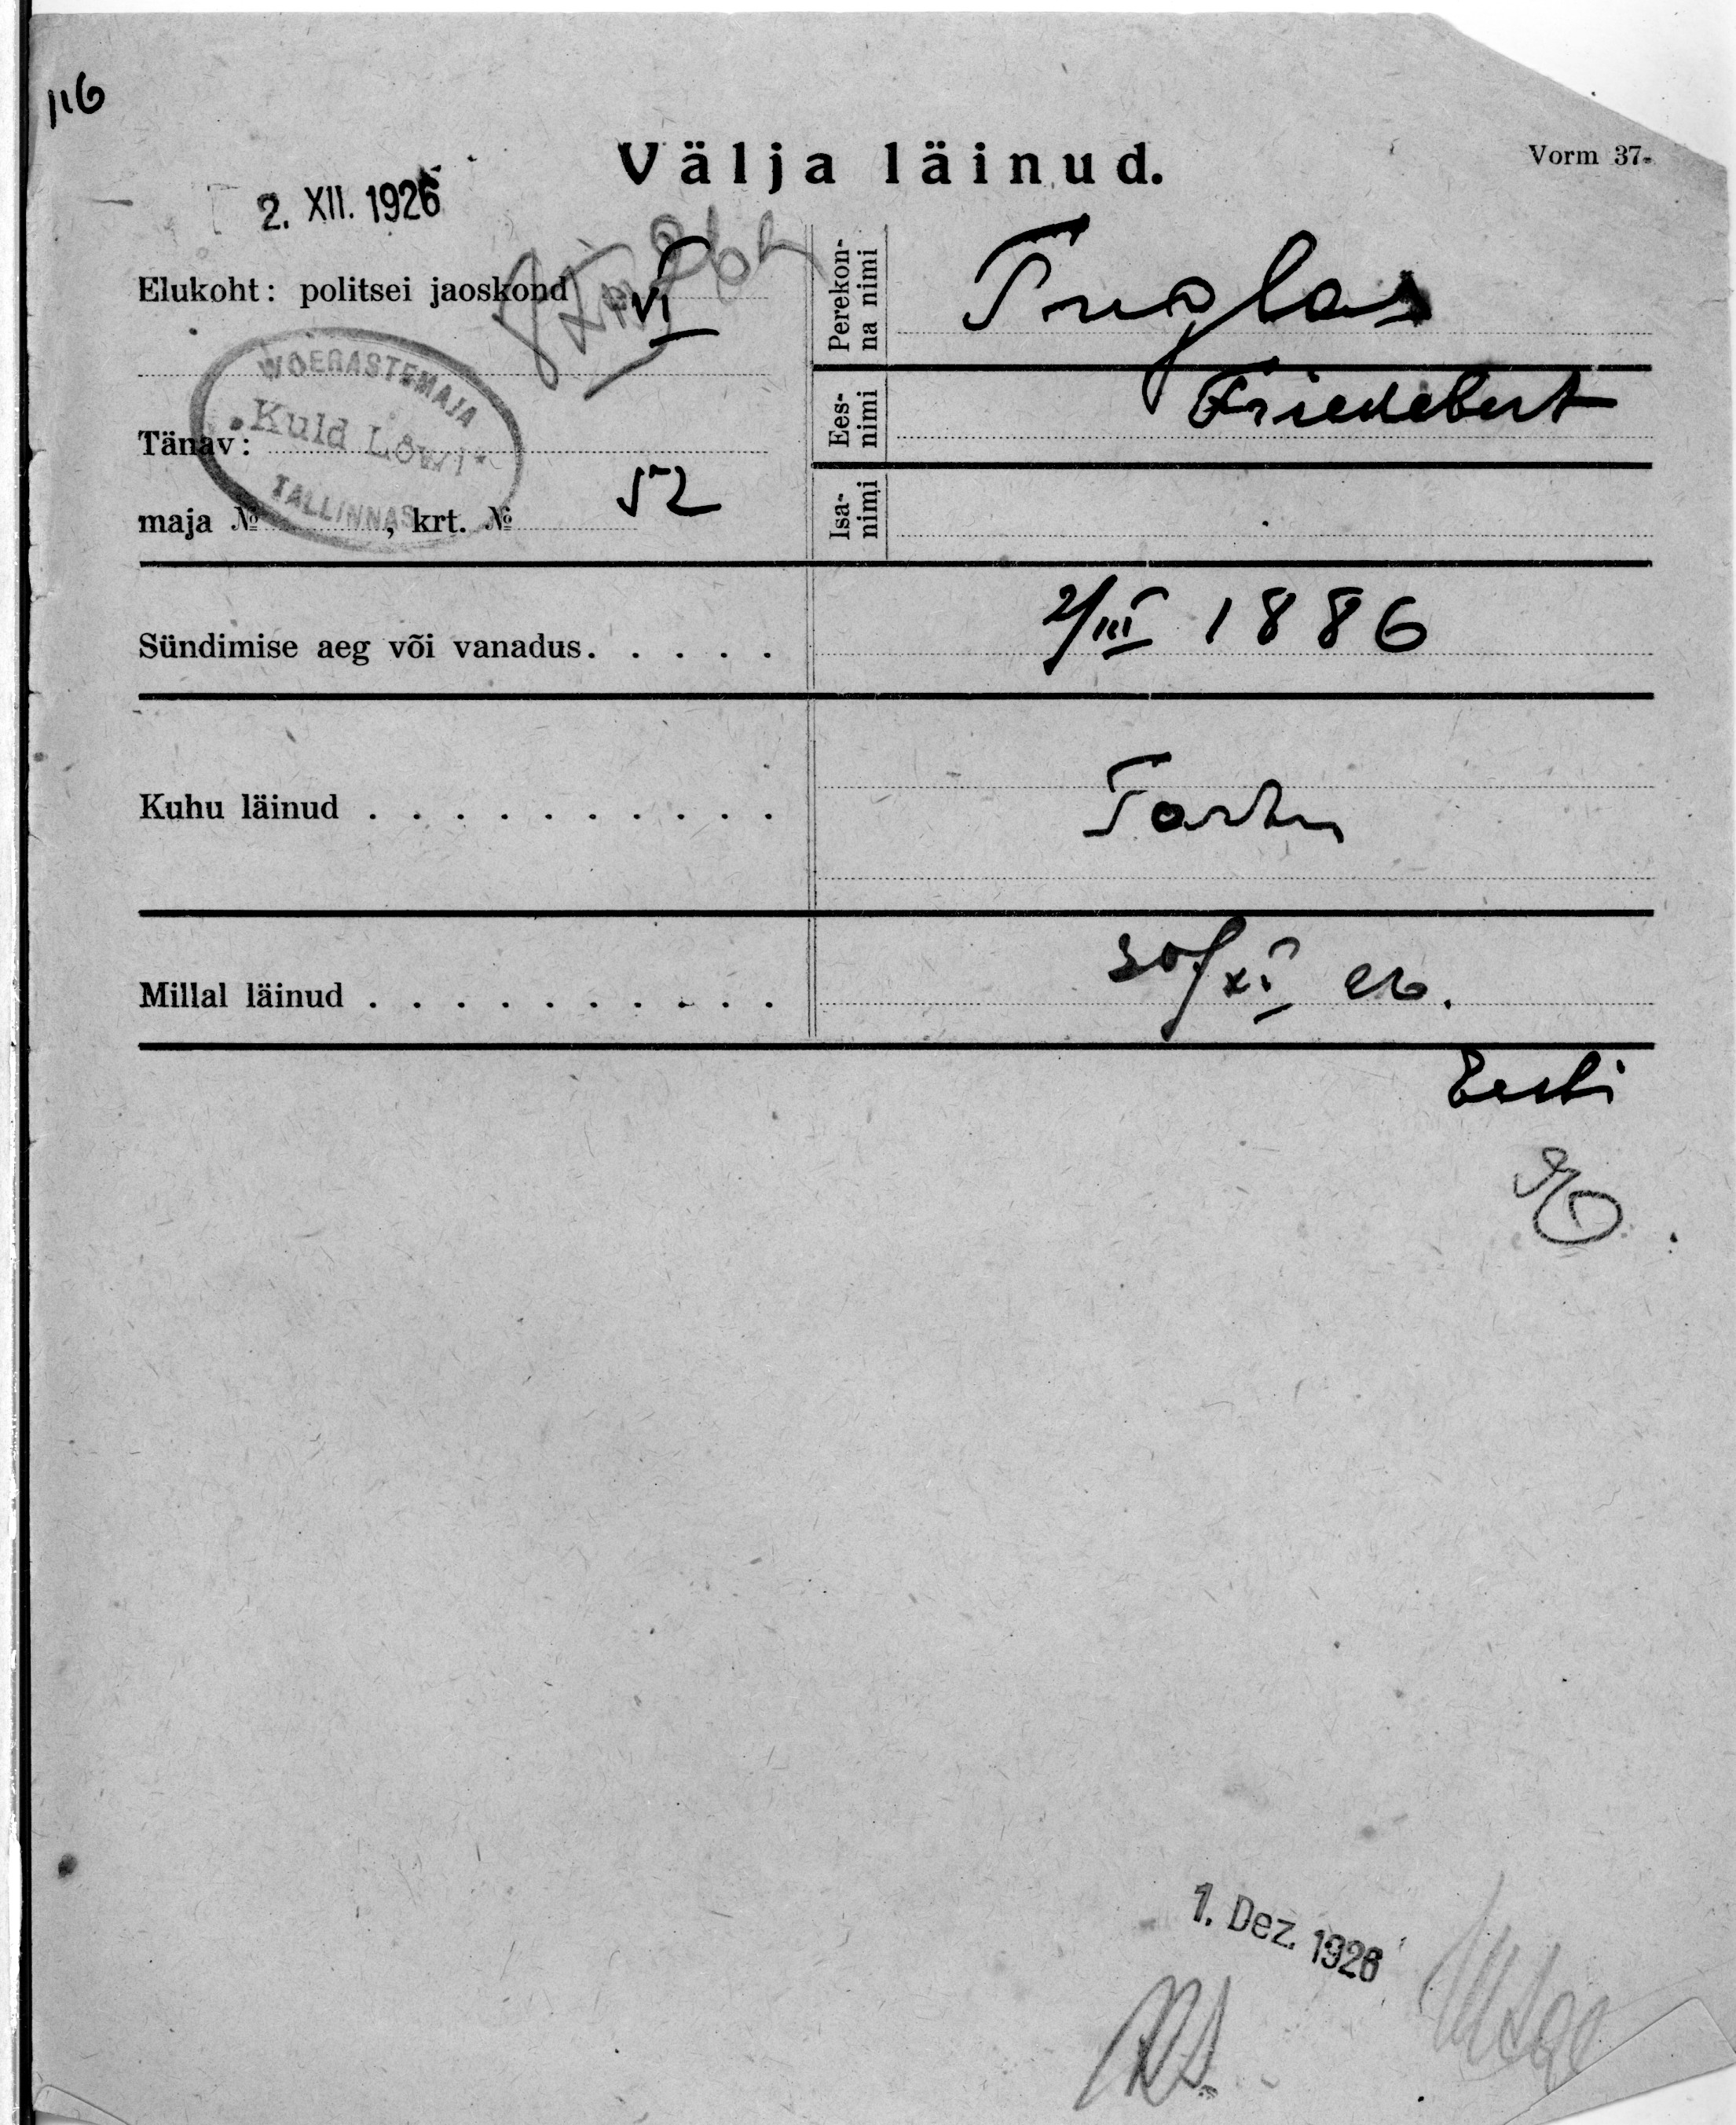 116
Välja läinud.
Vorm 37.
2. XII. 1926
Elukoht: politsei jaoskond VI
WÕERASTEMAJA
"Kuld Lõwi"
TALLINNAS
Tänav:
maja № , krt. № 52
Perekon-
na nimi
Tuglas
Ees-
nimi
Friedebert
Isa-
nimi
Sündimise aeg või vanadus. . . . . 2/III 1886
Kuhu läinud . . . . . . . . . . Tartu
Millal läinud . . . . . . . . . . 30/XI 26.
Eesti
1. Dez. 1926